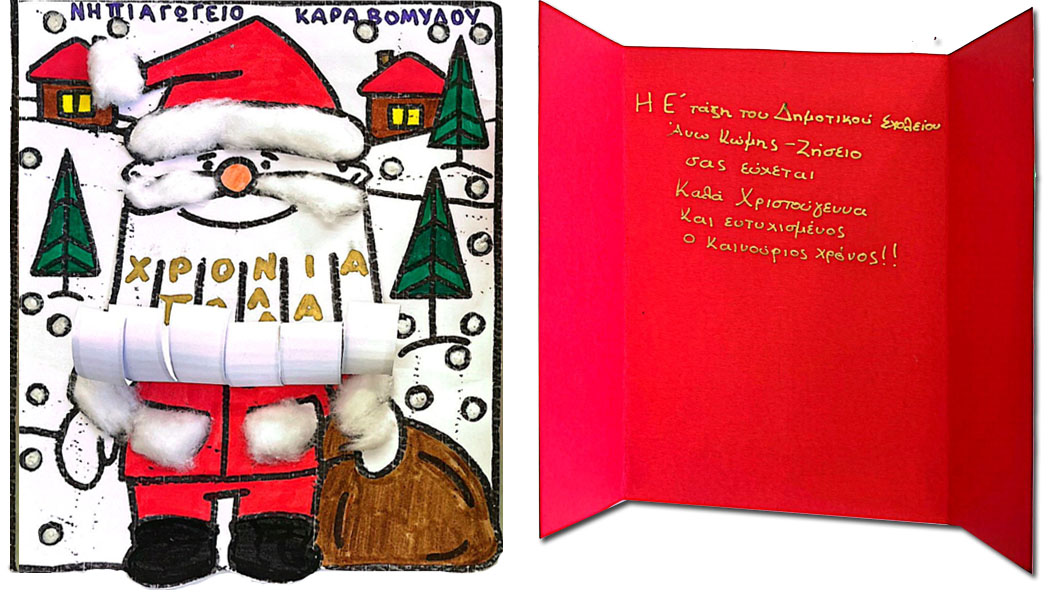 ΝΗΠΙΑΓΩΓΕΙΟ ΚΑΡΑΒΟΜΥΛΟΥ
ΧΡΟΝΙΑ
Η Ε΄ τάξη του Δημοτικού Σχολείου
Άνω Κώμης - Ζήσειο
σας εύχεται
Καλά Χριστούγεννα
και ευτυχισμένος
ο καινούριος χρόνος!!